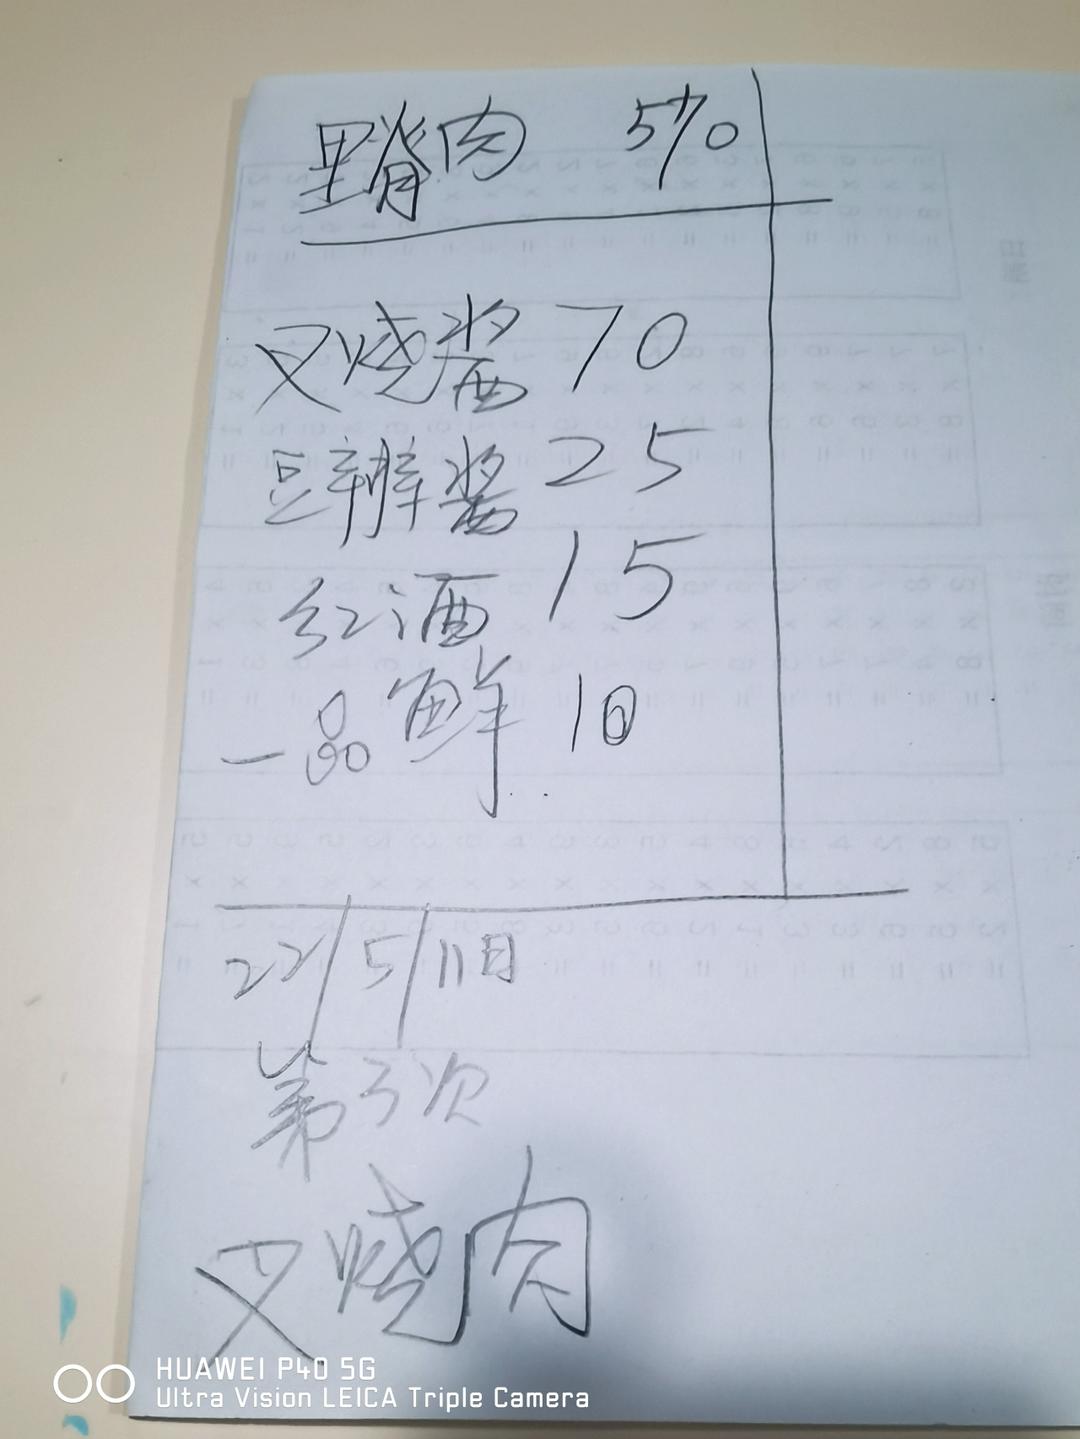 里脊肉 570
叉烧酱 70
豆瓣酱 25
红酒 15
一品鲜 10
22/5/11日
第3次
叉烧肉
HUAWEI P40 5G
Ultra Vision LEICA Triple Camera